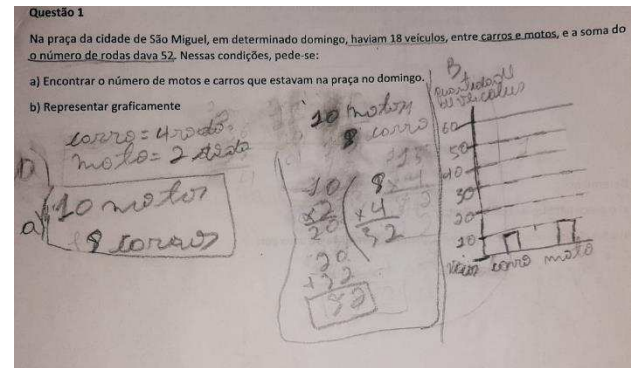 Questão 1
Na praça da cidade de São Miguel, em determinado domingo, haviam 18 veículos, entre carros e motos, e a soma do
o número de rodas dava 52. Nessas condições, pede-se:
a) Encontrar o número de motos e carros que estavam na praça no domingo.
b) Representar graficamente
carro = 4 roda
moto = 2
a) 10 motos
8 carros
10 motos
8 carro
10
x2
20
8
x4
32
20
+32
52
B
quantidade
60
50
40
30
20
10
carro moto